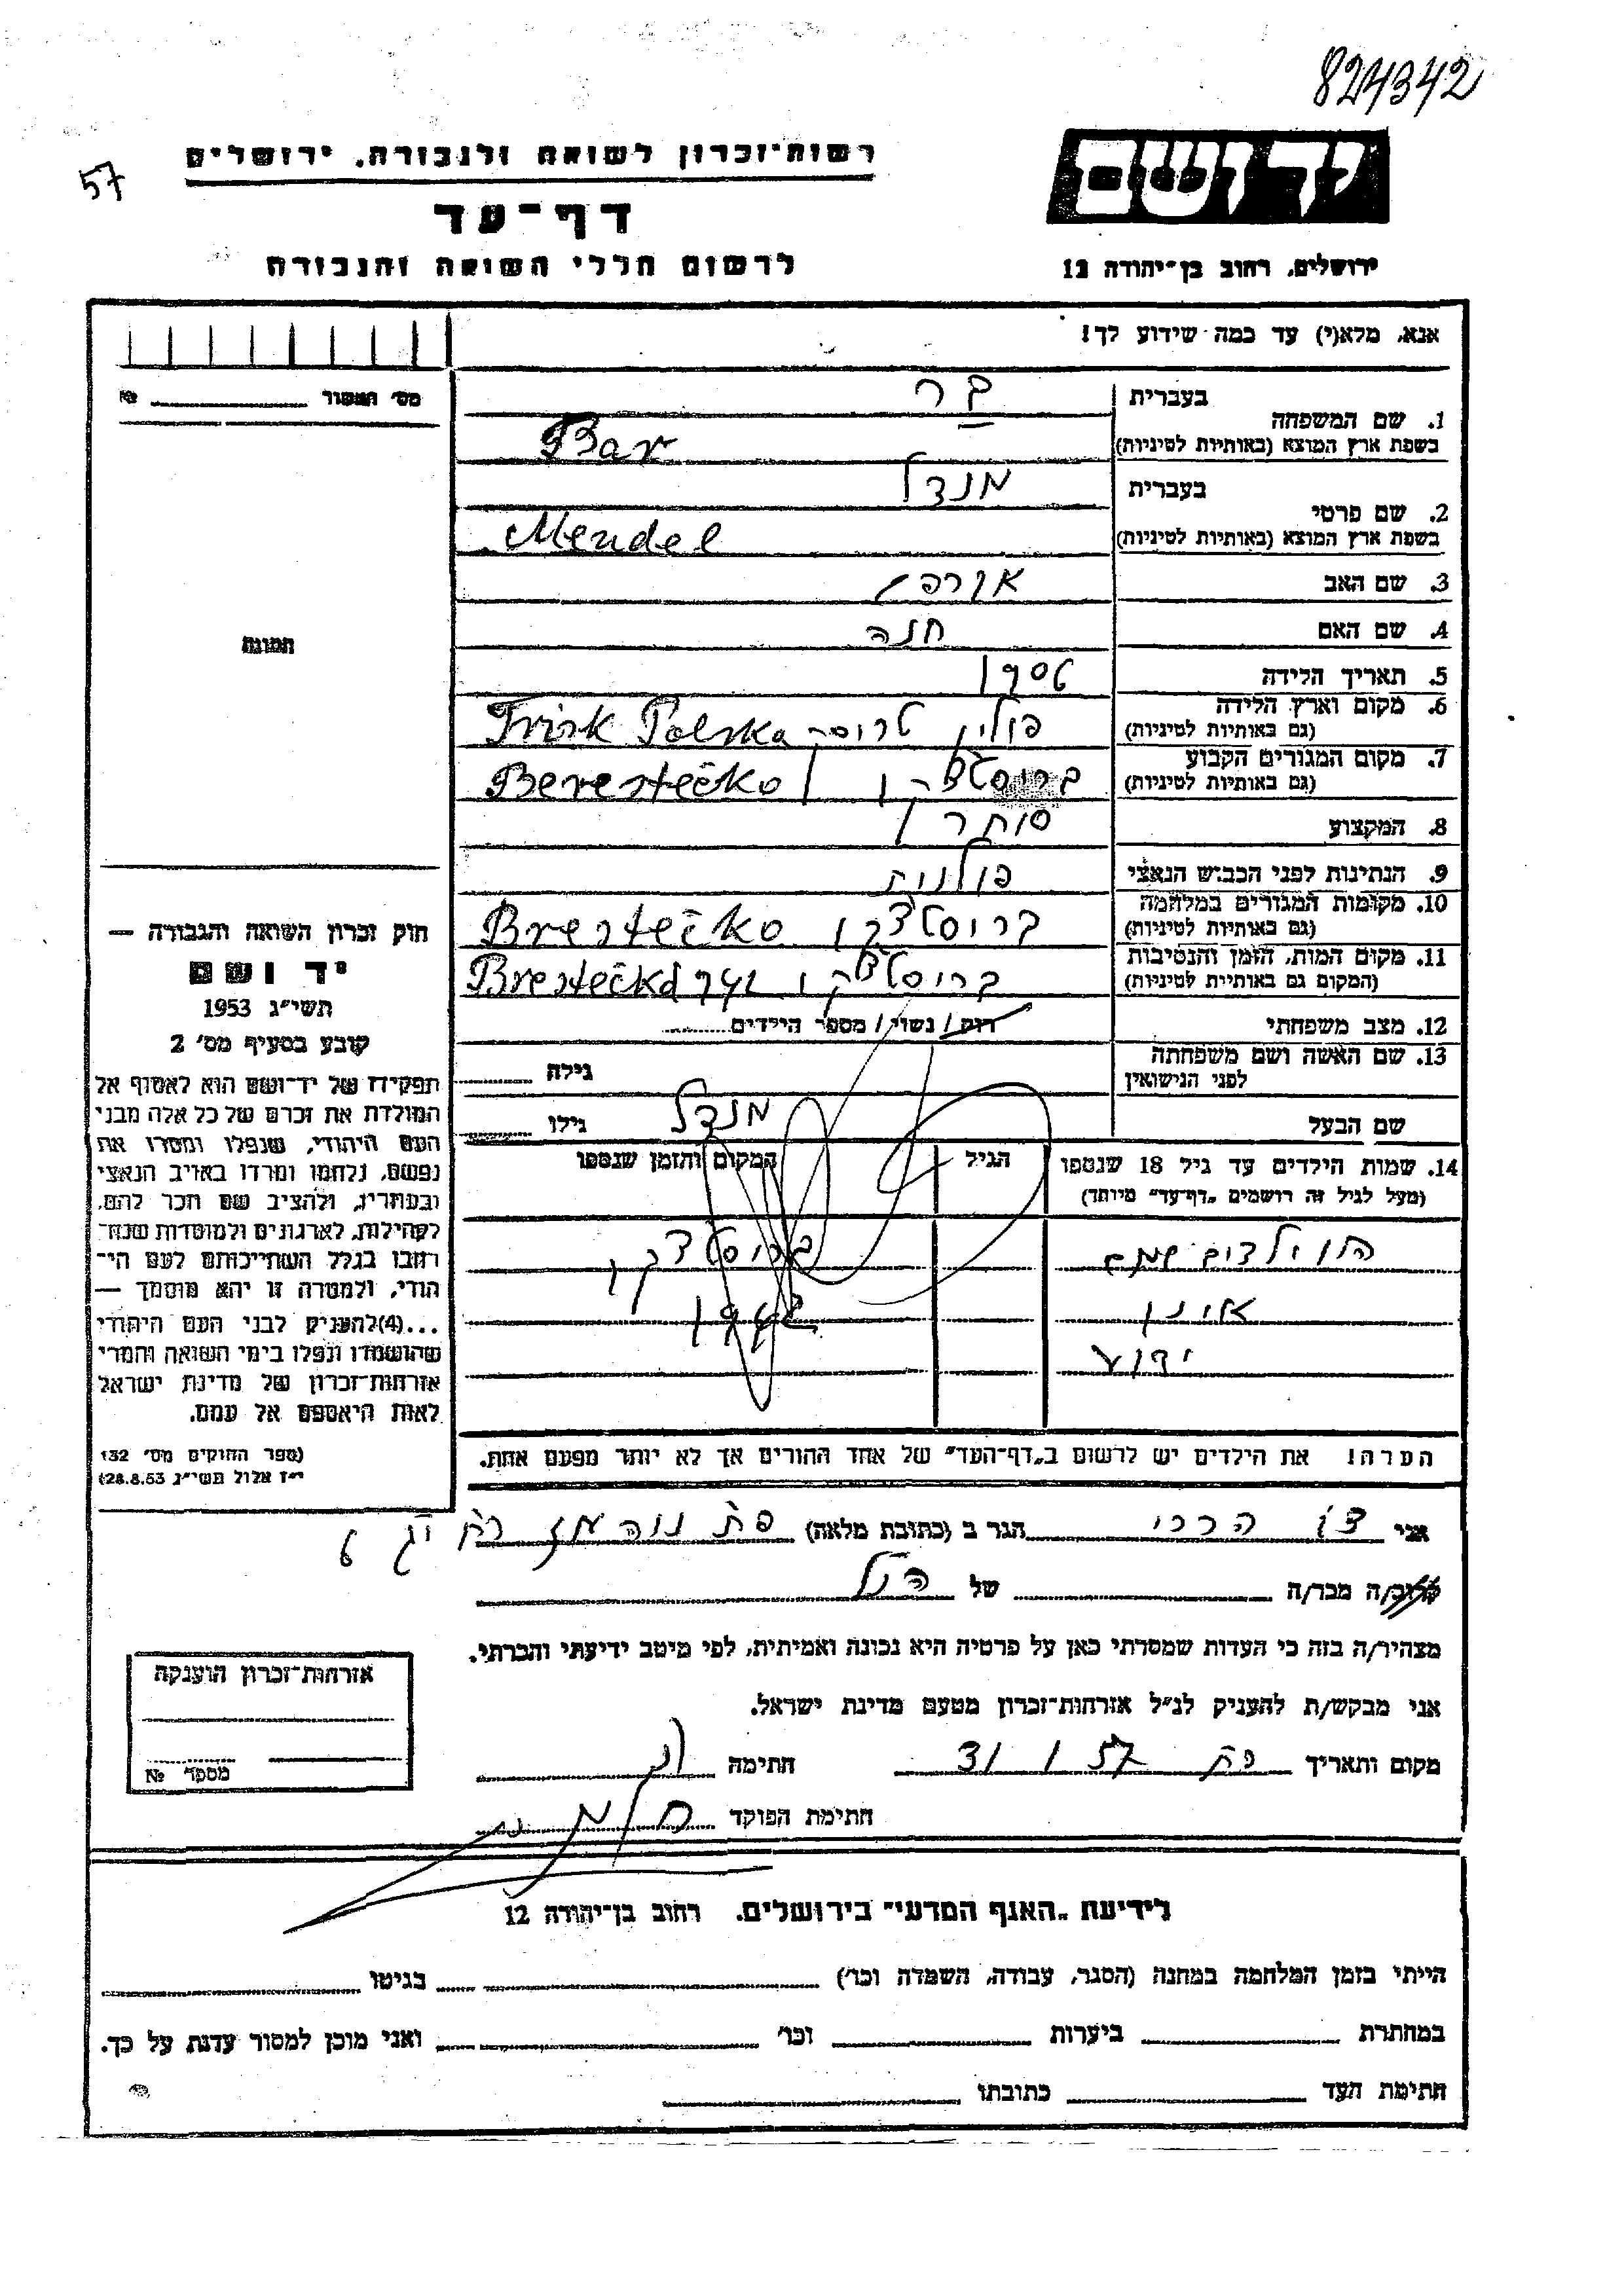 824342
57
יד ושם
רשות־זכרון לשואה ולגבורה, ירושלים
דף־עד
לרשום חללי השואה והגבורה
ירושלים, רחוב בן־יהודה 12
אנא, מלא(י) עד כמה שידוע לך!
מס׳ תמשור № 
תמונה
1. שם המשפחה בעברית בר
בשפת ארץ המוצא (באותיות לטיניות) Bar
2. שם פרטי בעברית מנדל
בשפת ארץ המוצא (באותיות לטיניות) Mendel
3. שם האב
4. שם האם חנה
5. תאריך הלידה
6. מקום וארץ הלידה
(גם באותיות לטיניות) פולין Trisk Polska
7. מקום המגורים הקבוע
(גם באותיות לטיניות) Berestečko
8. המקצוע סוחר
9. הנתינות לפני הכבוש הנאצי פולנית
10. מקומות המגורים במלחמה
(גם באותיות לטיניות) ברוסטצקו Brestečko
11. מקום המות, הזמן והנסיבות
(המקום גם באותיות לטיניות) ברוסטצקו
12. מצב משפחתי רווק / נשוי / מספר הילדים
13. שם האשה ושם משפחתה
לפני הנישואין גילה
שם הבעל מנדל גילו
14. שמות הילדים עד גיל 18 שנספו הגיל המקום והזמן שנספו
(מעל לגיל זה רושמים „דף־עד״ מיוחד)
ברוסטצקו
1942
הערה! את הילדים יש לרשום ב„דף־העד״ של אחד ההורים אך לא יותר מפעם אחת.
חוק זכרון השואה והגבורה —
יד ושם
תשי״ג 1953
קובע בסעיף מס׳ 2
תפקידו של יד־ושם הוא לאסוף אל
המולדת את זכרם של כל אלה מבני
העם היהודי, שנפלו ומסרו את
נפשם, נלחמו ומרדו באויב הנאצי
ובעוזריו, ולהציב שם וזכר להם,
לקהילות, לארגונים ולמוסדות שנח־
רבו בגלל השתייכותם לעם הי־
הודי, ולמטרה זו יהא מוסמך —
...(4) להעניק לבני העם היהודי
שהושמדו ונפלו בימי השואה והמרי
אזרחות־זכרון של מדינת ישראל
לאות היאספם אל עמם.
(ספר החוקים מס׳ 132
י״ז אלול תשי״ג 28.8.53)
אני הגר ב (כתובת מלאה)
קרוב/ה מכר/ה של הנ״ל
מצהיר/ה בזה כי העדות שמסרתי כאן על פרטיה היא נכונה ואמיתית, לפי מיטב ידיעתי והכרתי.
אני מבקש/ת להעניק לנ״ל אזרחות־זכרון מטעם מדינת ישראל.
מקום ותאריך 31 1 57 חתימה
חתימת הפוקד
אזרחות־זכרון הוענקה
מספר №
לידיעת „האגף המדעי״ בירושלים. רחוב בן־יהודה 12
הייתי בזמן המלחמה במחנה (הסגר, עבודה, השמדה וכו׳) בגיטו
במחתרת ביערות וכו׳ ואני מוכן למסור עדות על כך.
חתימת העד כתובתו